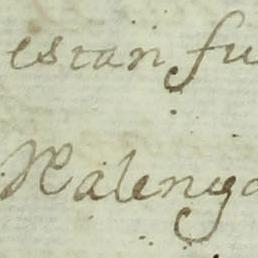 estan fu
Xalenga